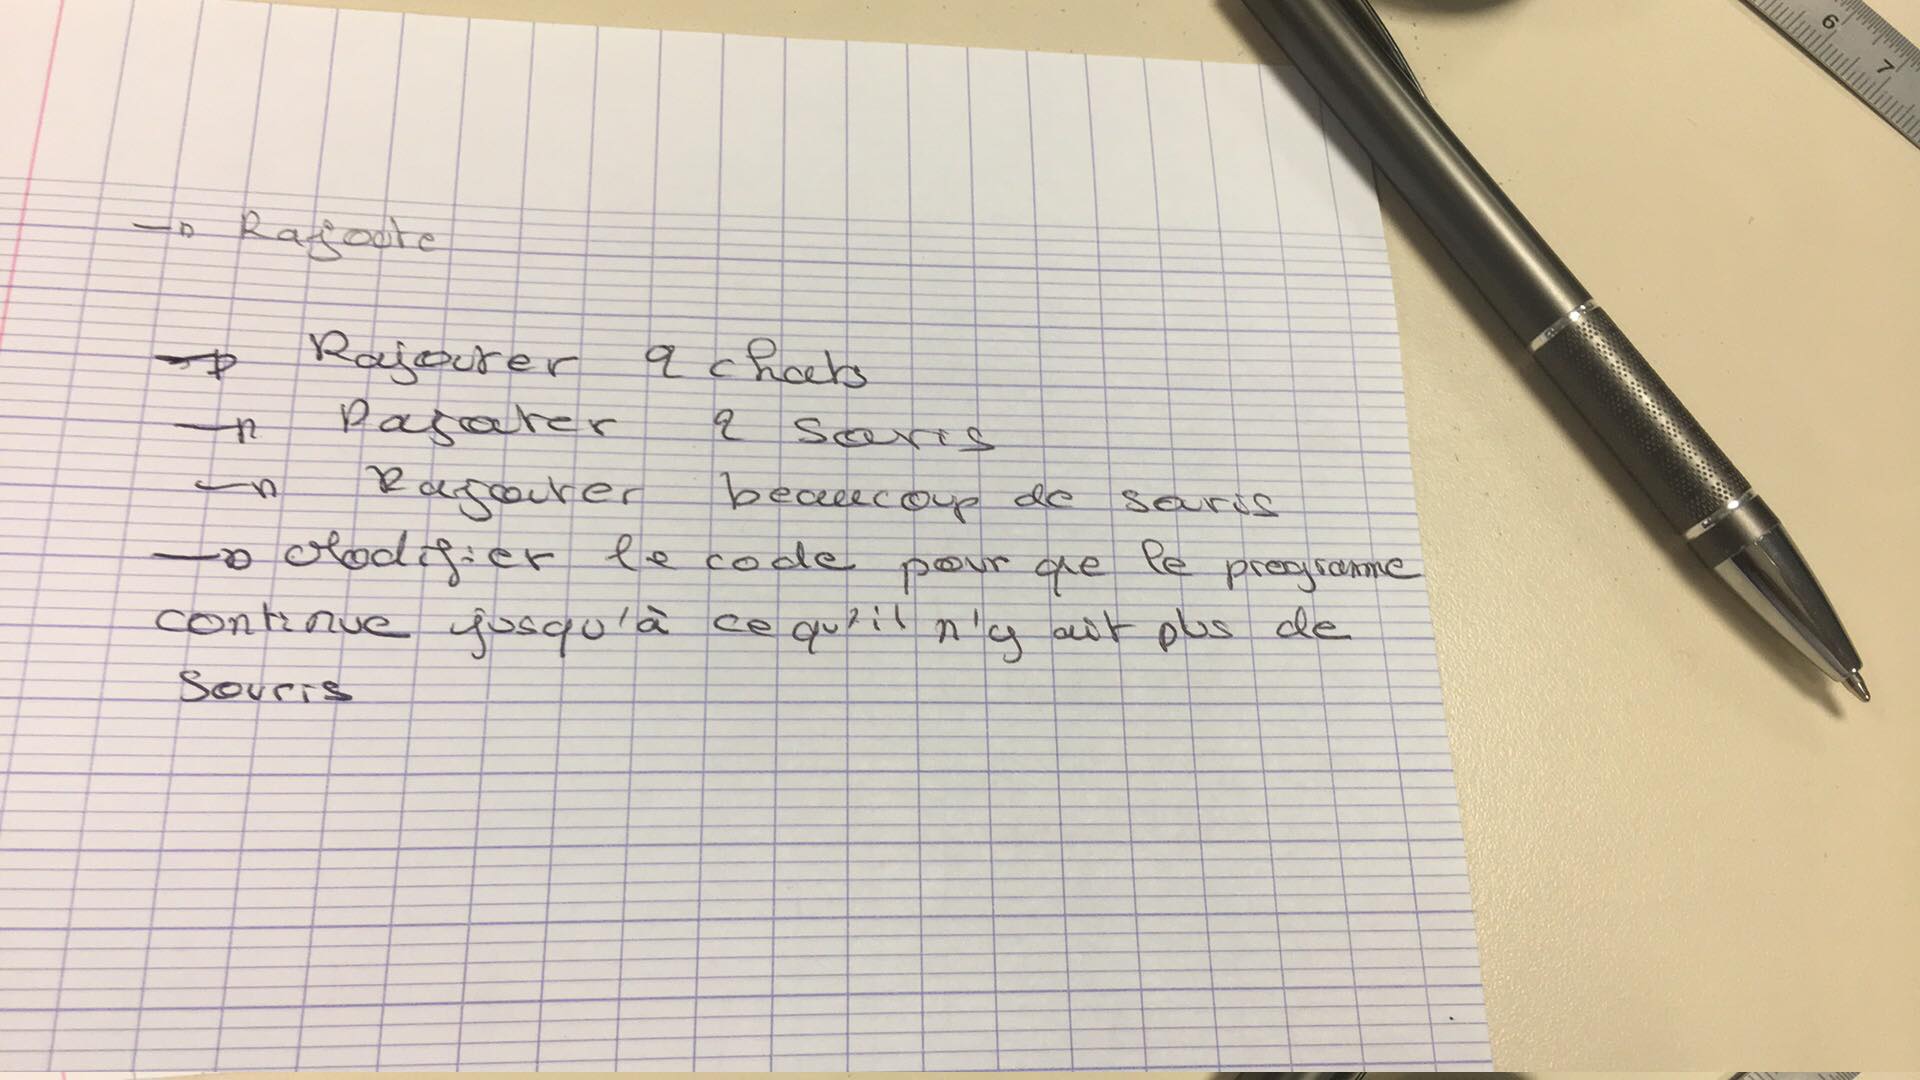 → Rajoute
→ Rajouter 2 chats
→ Rajouter 2 souris
→ Rajouter beaucoup de souris
→ Modifier le code pour que le programme
continue jusqu'à ce qu'il n'y ait plus de
souris
6
7